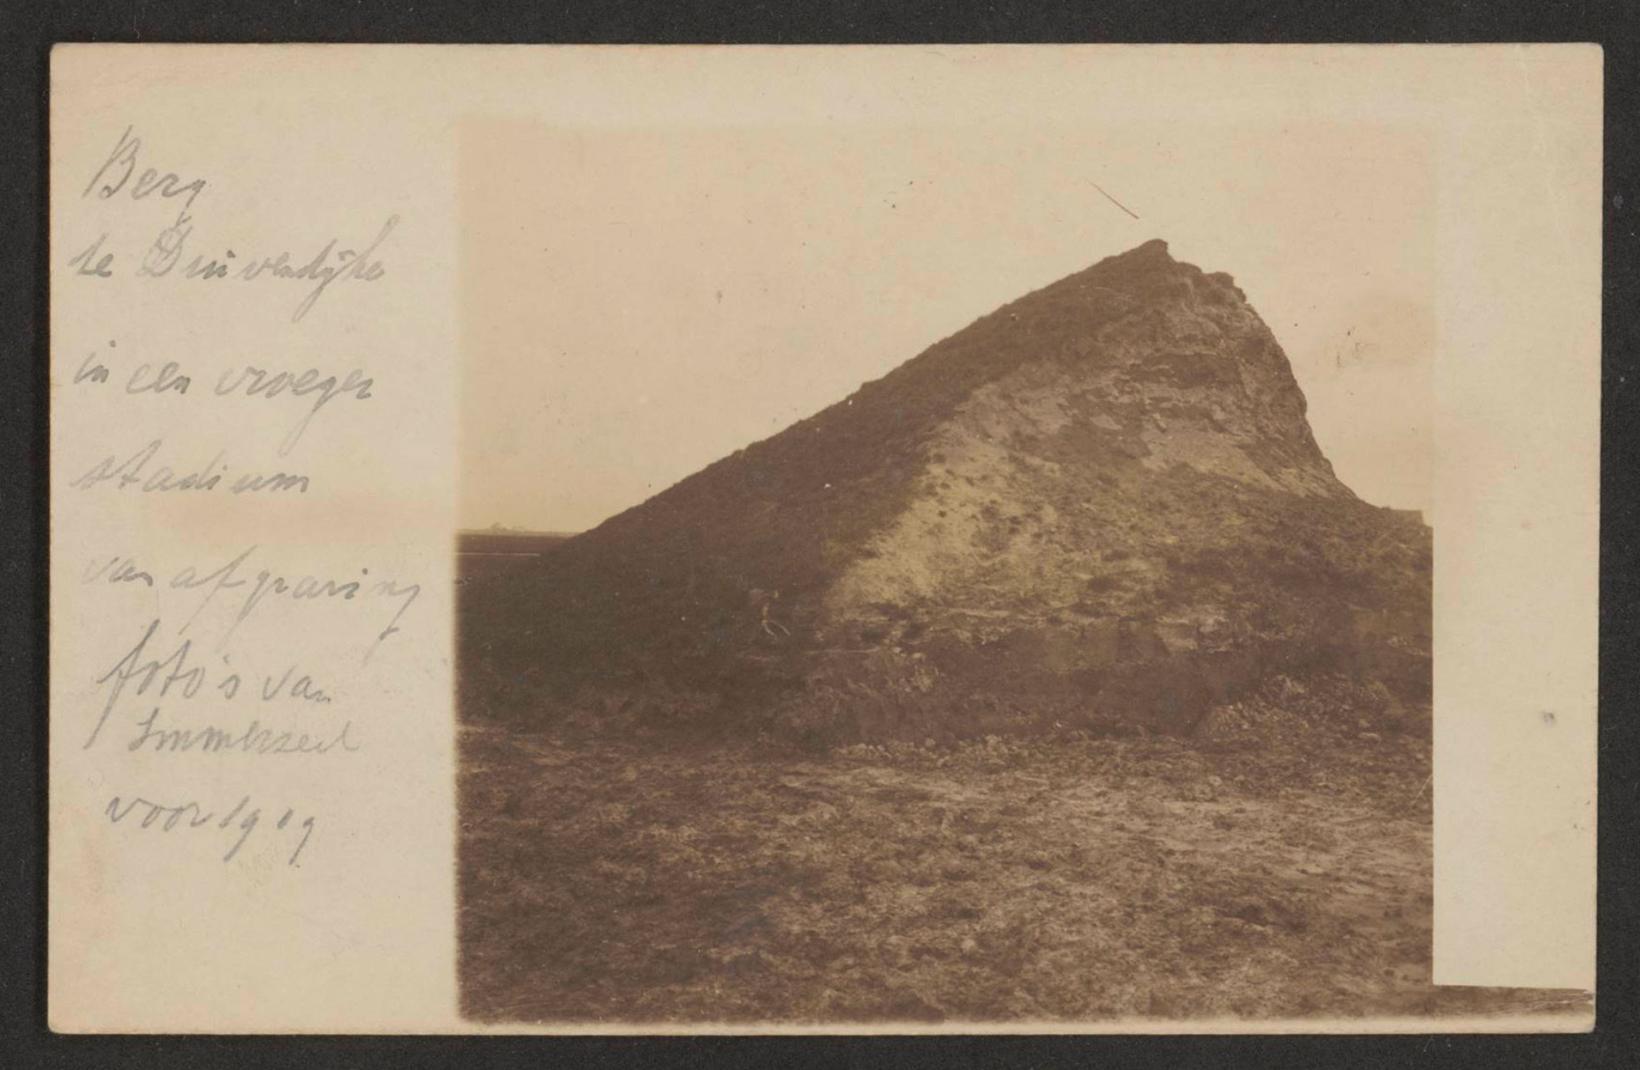 Berg
te Duivendijke
in een vroeger
stadium
van afgraving
foto's van
Immerzeel
voor 1919